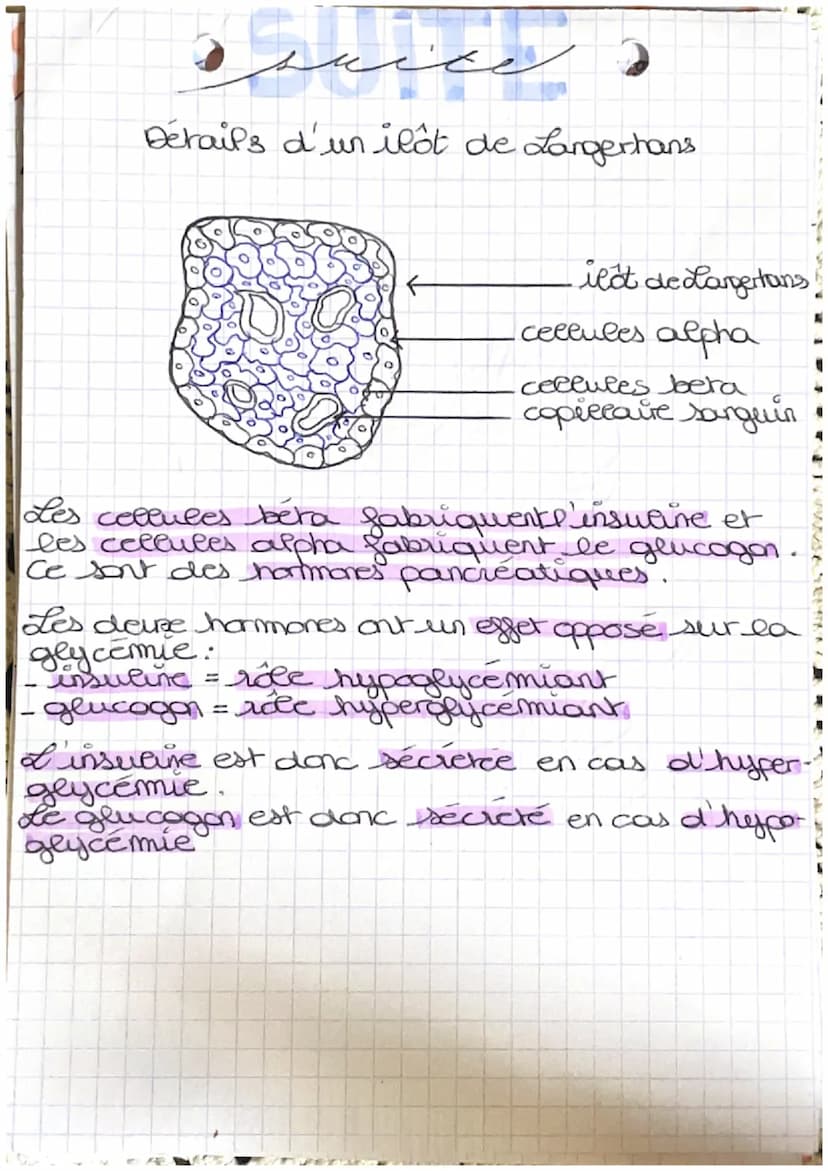 SUITE
suite
Détails d'un ilôt de Langerhans
ilôt de Langerhans
cellules alpha
cellules beta
capillaire sanguin
Les cellules béta fabriquent l'insuline et
les cellules alpha fabriquent le glucagon.
Ce sont des hormones pancréatiques.
Les deux hormones ont un effet opposé sur la
glycémie :
- insuline = rôle hypoglycémiant
- glucagon = rôle hyperglycémiant
L'insuline est donc sécrétée en cas d'hyper-
glycémie.
Le glucagon est donc sécrété en cas d'hypo-
glycémie